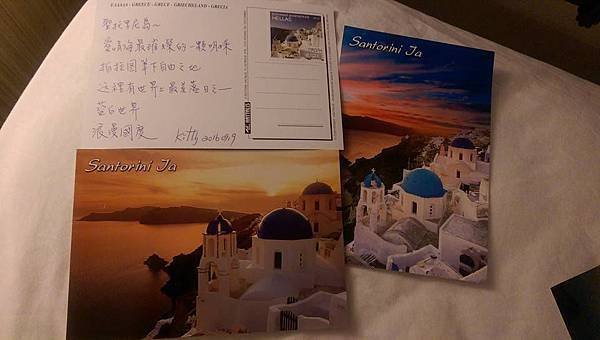 ΕΛΛΑΣ - GREECE - GRECE - GRIECHELAND - GRECIA
聖托里尼島~
愛琴海最璀燦的一顆明珠
柏拉圖筆下自由之地
這裡有世界上最美落日之一
藍白世界
浪漫國度
Kitty 2016.09.19
HELLAS
Santorini Ia
Santorini Ia